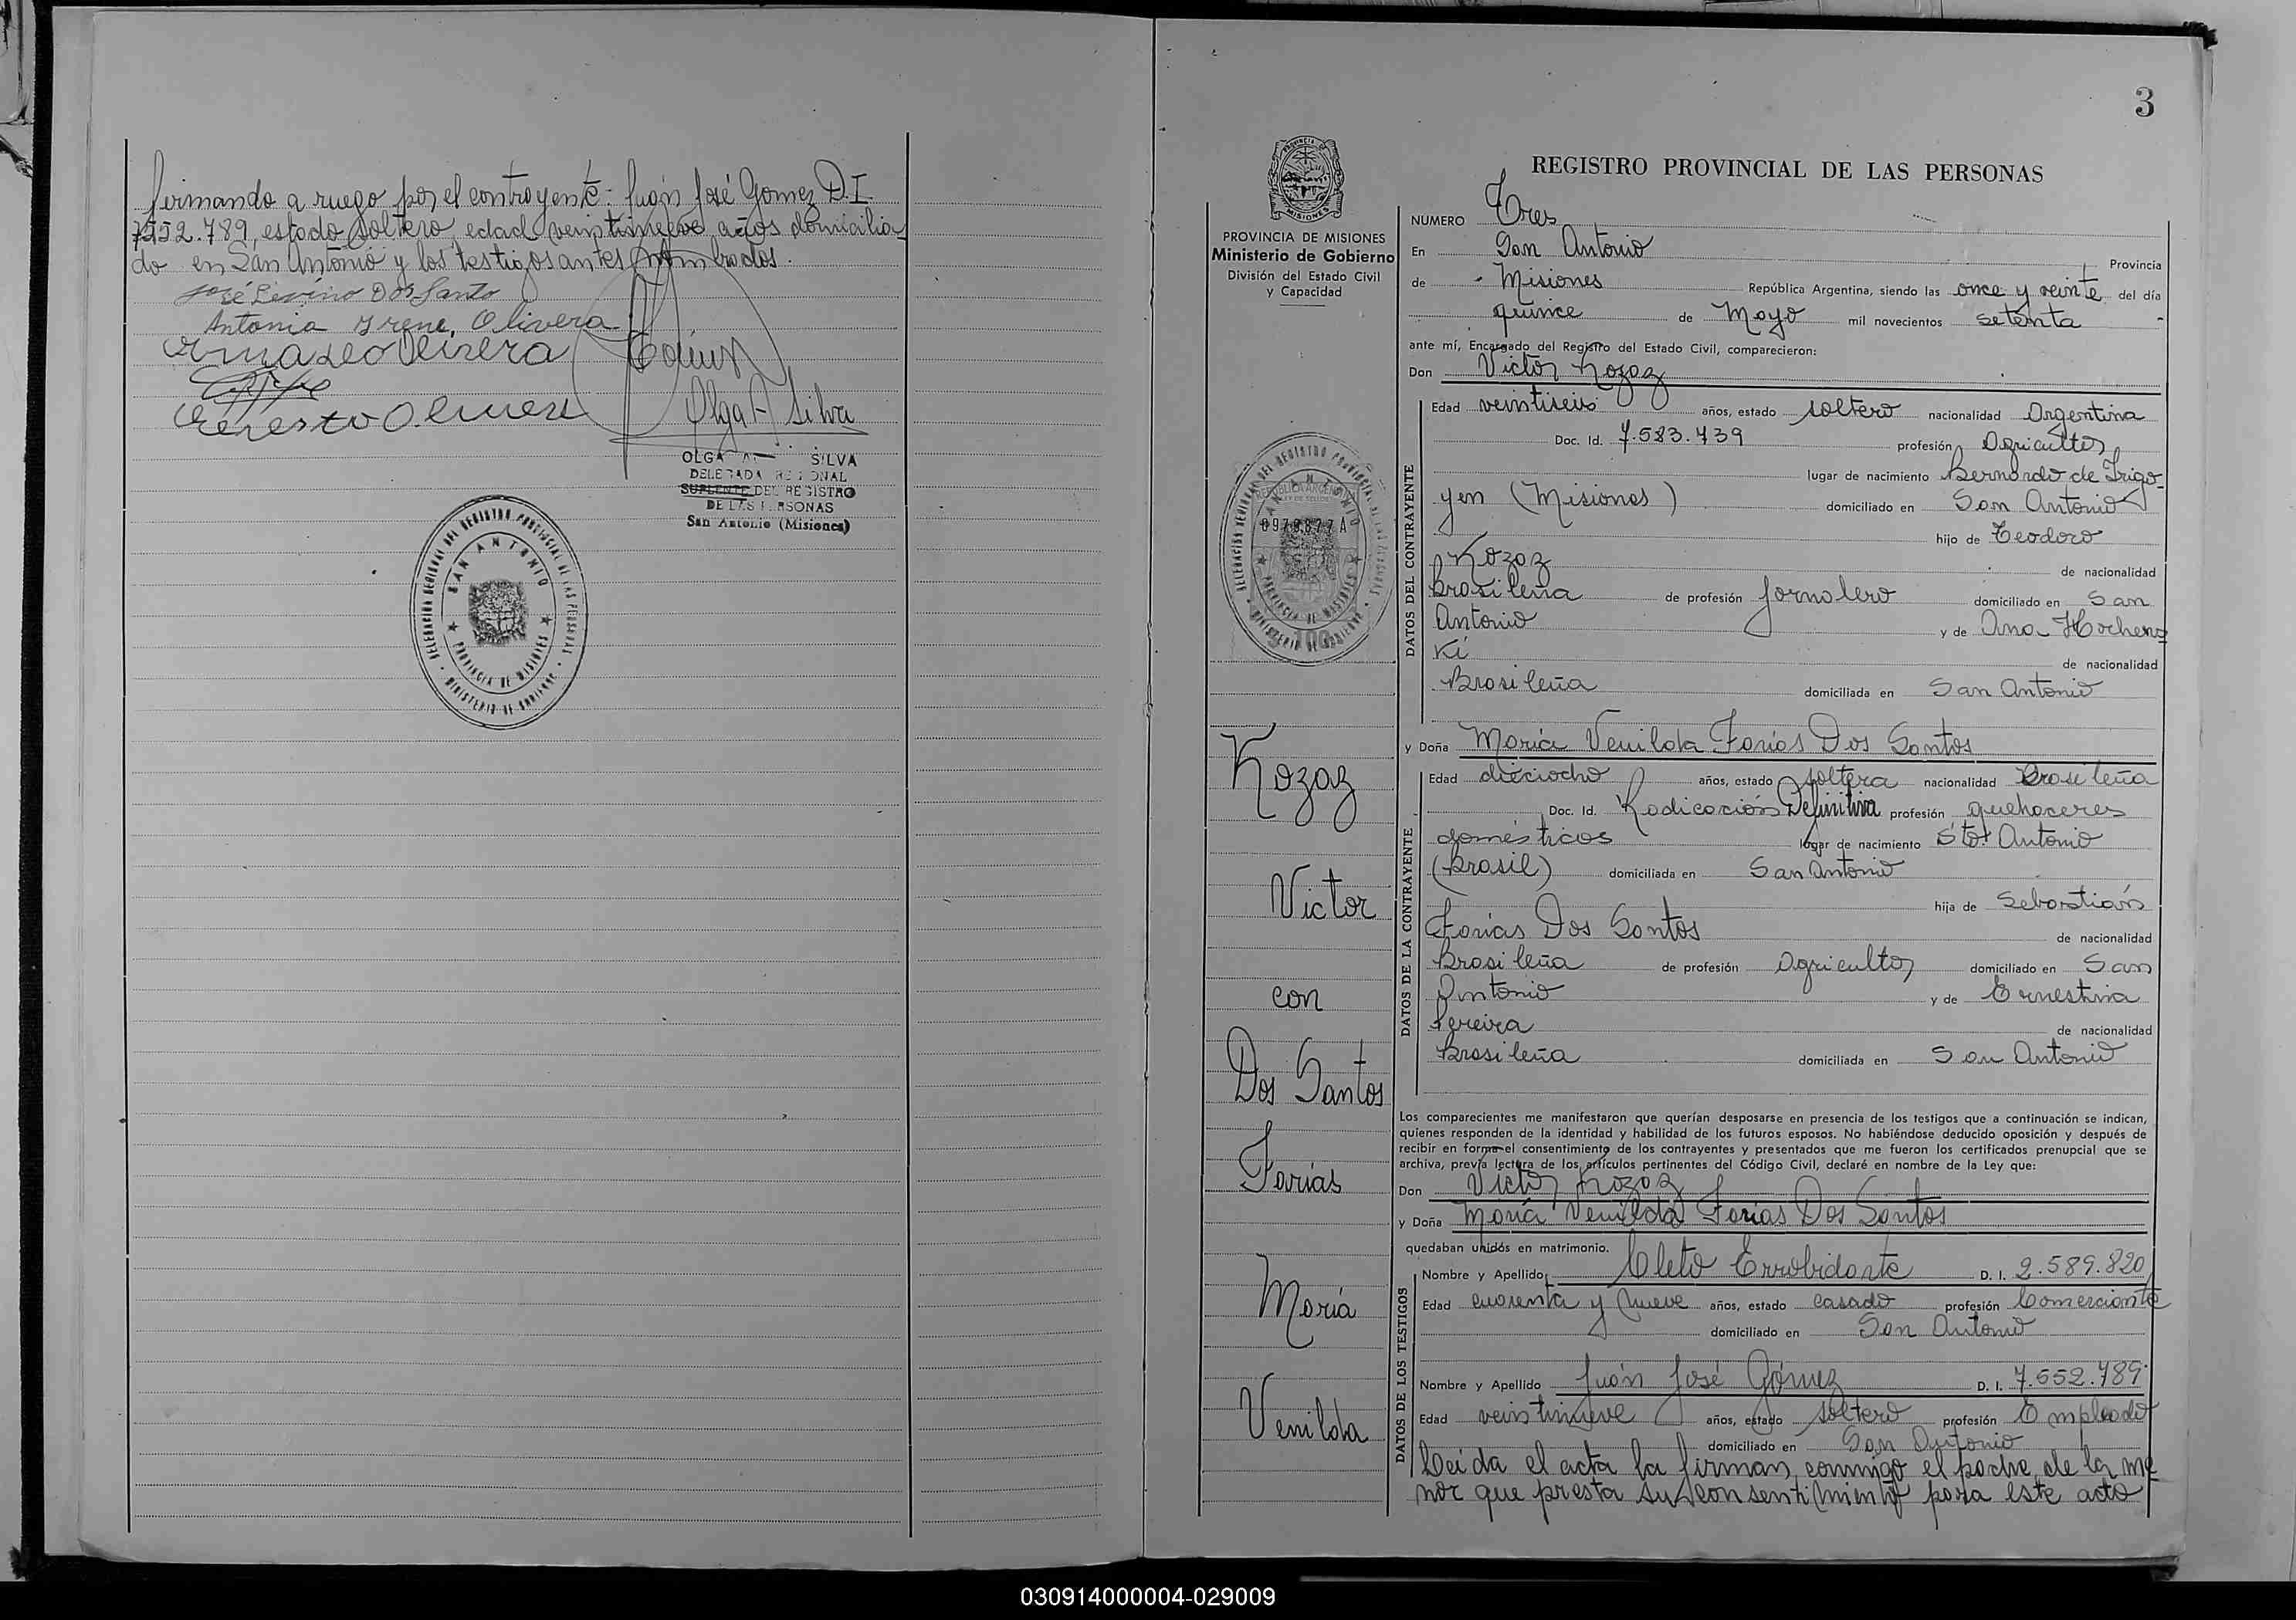 firmando a ruego por el contrayente: Juan José Gomez D.I.
7.552.789, estado soltero edad veintinueve años domicilia-
do en San Antonio y los testigos antes nombrados.
José Livino Dos Santo
Antonia Irene, Olivera
Olivera
Olga A Silva
OLGA A. SILVA
DELEGADA REGIONAL
SUPLENTE DEL REGISTRO
DE LAS PERSONAS
San Antonio (Misiones)
DELEGACION REGIONAL DEL REGISTRO PROVINCIAL DE LAS PERSONAS
SAN ANTONIO
PROVINCIA DE MISIONES
MINISTERIO DE GOBIERNO
3
PROVINCIA DE MISIONES
Ministerio de Gobierno
División del Estado Civil
y Capacidad
Kozaz
Victor
con
Dos Santos
Farias
María
Venilda
REGISTRO PROVINCIAL DE LAS PERSONAS
NUMERO Tres
En San Antonio Provincia
de Misiones República Argentina, siendo las once y veinte del día
quince de Mayo mil novecientos setenta
ante mí, Encargado del Registro del Estado Civil, comparecieron:
Don Victor Kozaz
DATOS DEL CONTRAYENTE
Edad veintiseis años, estado soltero nacionalidad Argentina
Doc. Id. 7.583.739 profesión Agricultor
lugar de nacimiento Bernardo de Irigo-
yen (Misiones) domiciliado en San Antonio
hijo de Teodoro
Kozaz de nacionalidad
Brasileña de profesión Jornalero domiciliado en San
Antonio y de Ana Hochens
ki de nacionalidad
Brasileña domiciliada en San Antonio
y Doña María Venilda Farias Dos Santos
DATOS DE LA CONTRAYENTE
Edad dieciocho años, estado soltera nacionalidad Brasileña
Doc. Id. Radicación Definitiva profesión quehaceres
domésticos lugar de nacimiento Sto. Antonio
(Brasil) domiciliada en San Antonio
hija de Sebastián
Farias Dos Santos de nacionalidad
Brasileña de profesión Agricultor domiciliado en San
Antonio y de Ernestina
Pereira de nacionalidad
Brasileña domiciliada en San Antonio
Los comparecientes me manifestaron que querían desposarse en presencia de los testigos que a continuación se indican,
quienes responden de la identidad y habilidad de los futuros esposos. No habiéndose deducido oposición y después de
recibir en forma el consentimiento de los contrayentes y presentados que me fueron los certificados prenupcial que se
archiva, previa lectura de los artículos pertinentes del Código Civil, declaré en nombre de la Ley que:
Don Victor Kozaz
y Doña María Venilda Farias Dos Santos
quedaban unidos en matrimonio.
DATOS DE LOS TESTIGOS
Nombre y Apellido Cleto Errobidarte D. I. 2.589.820
Edad cuarenta y nueve años, estado casado profesión Comerciante
domiciliado en San Antonio
Nombre y Apellido Juan José Gómez D. I. 7.552.789
Edad veintinueve años, estado soltero profesión Empleado
domiciliado en San Antonio
Leida el acta la firman conmigo el padre de la me
nor que presta su consentimiento para este acto
030914000004-029009